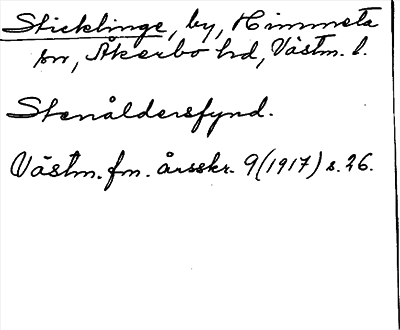 Sticklinge, by, Himmeta
sn, Åkerbo hd, Västm. l.
Stenåldersfynd.
Västm. fm. årsskr. 9 (1917) s. 26.